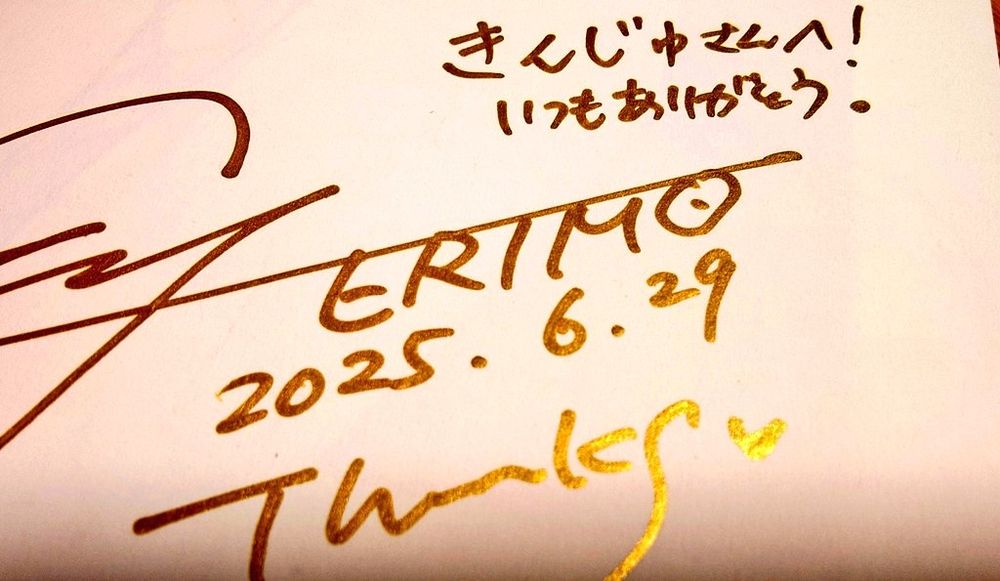 きんじゅさんへ!
いつもありがとう。
ERIMO
2025.6.29
Thanks